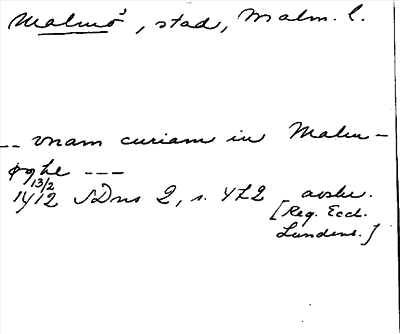 Malmö, stad, Malm. l.
-- vnam curiam in Malm-
øghe ---
13/2
1412 SDns 2, s. 422 avskr.
[Reg. Eccl.
Lundens.]